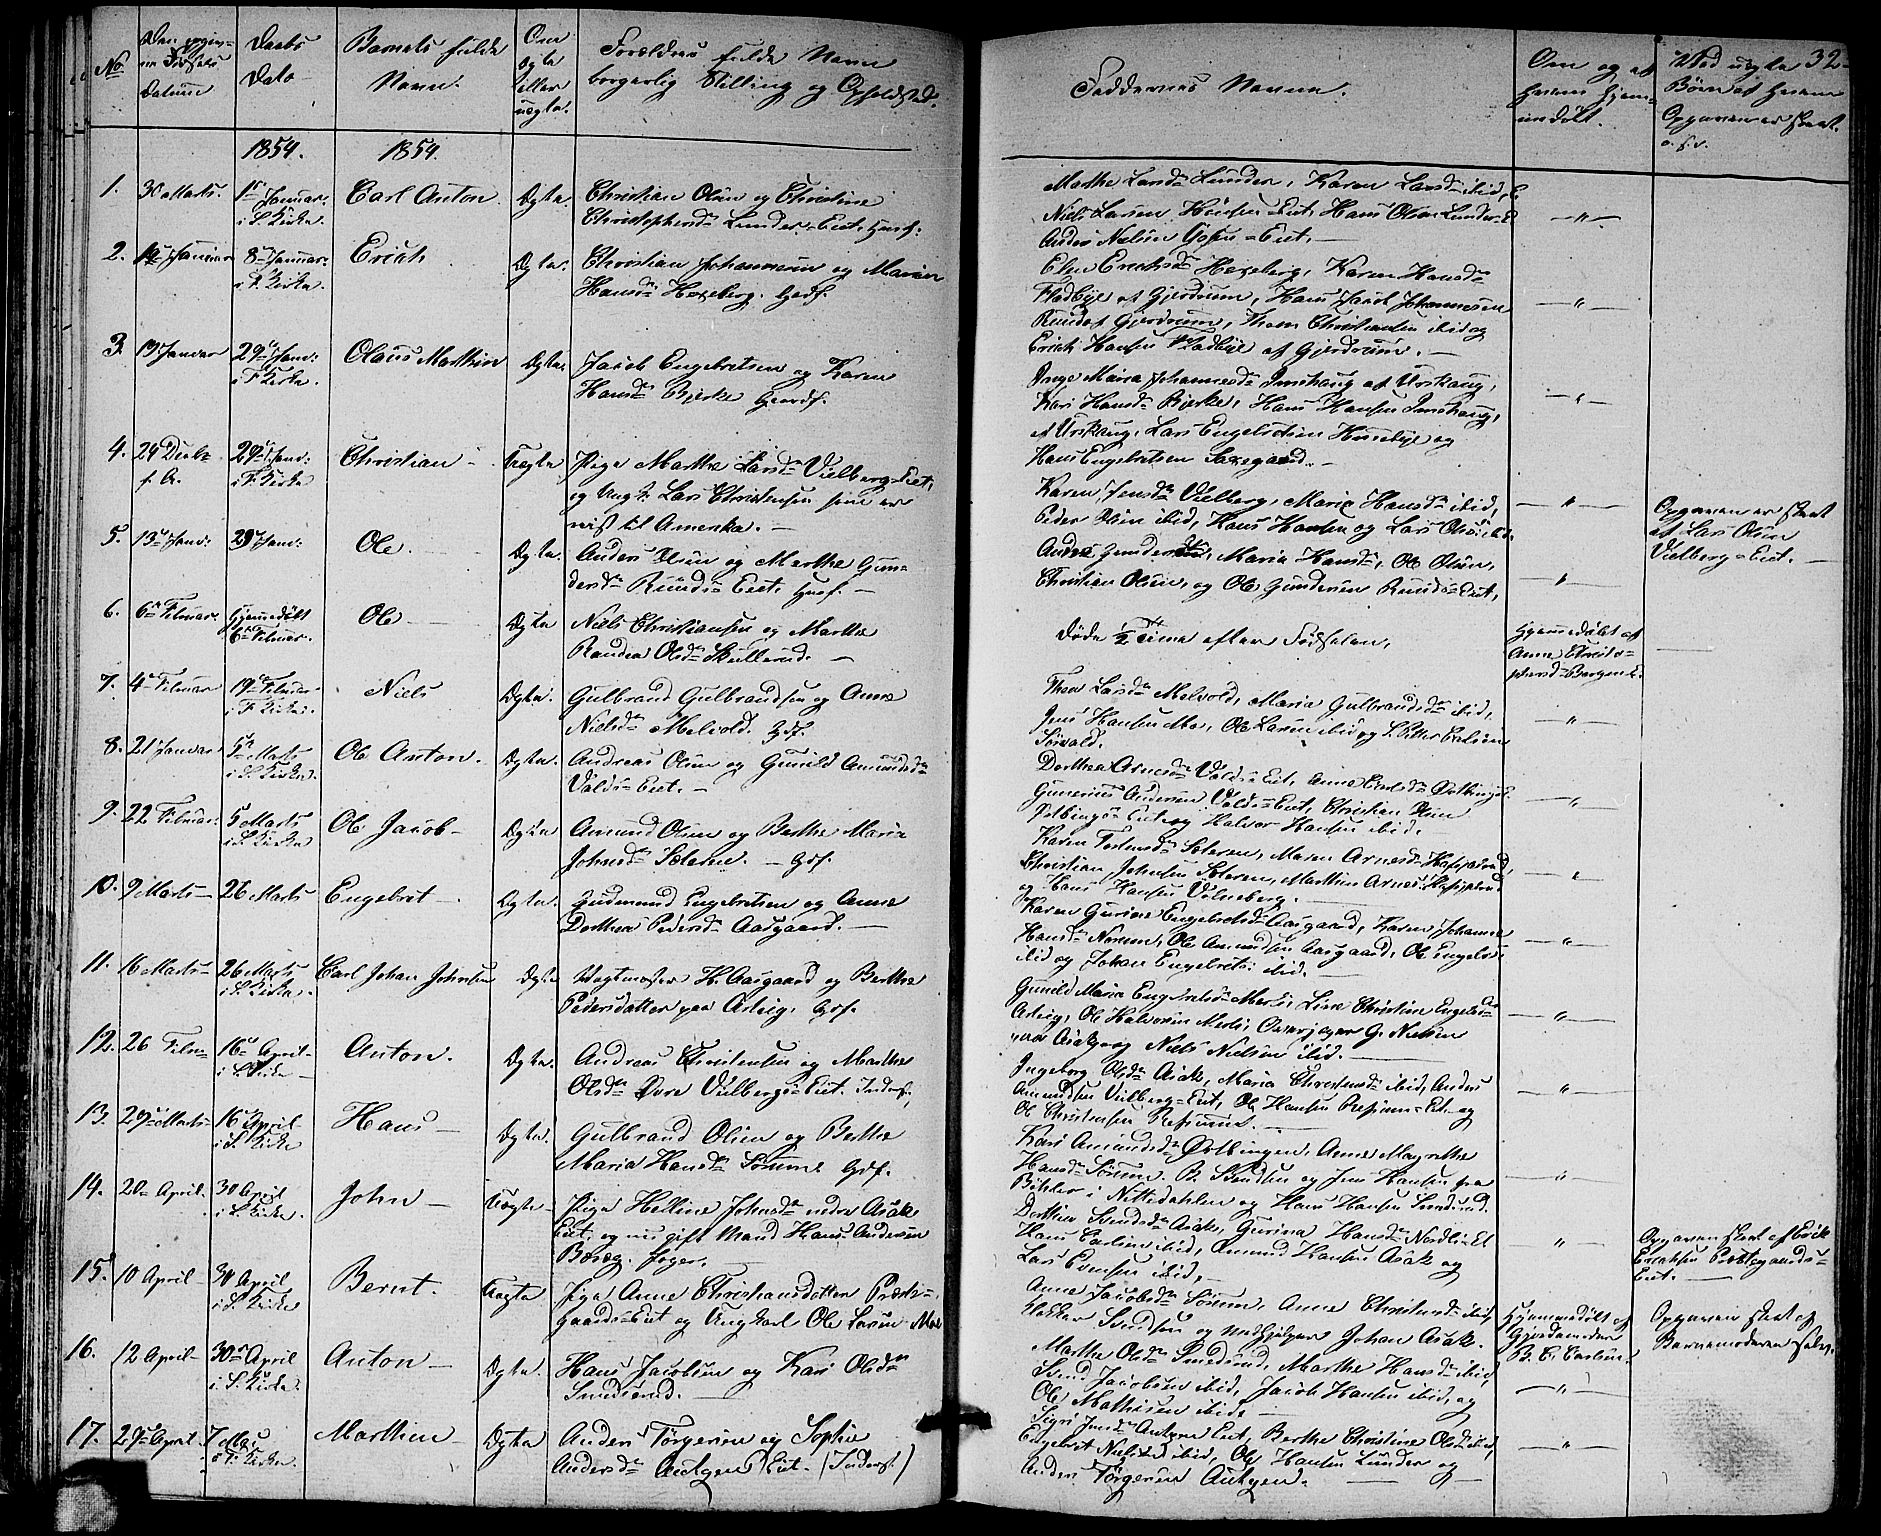 No.
Den opgivne Fødsels Datum
Daabs Dato
Barnets fulde Navn.
Om Ægte eller uægte.
Forældres fulde Navn borgerlig Stilling og Opholdsted.
Faddernes Navne.
Om og af Hvem Hjemmedøbt.
Ved uægte Børn af Hvem Opgaven er skeet. o. s. v.
32
1854. 1854.
1. 30 Marts. 1ste Januar i S. Kirke Carl Anton Ægte Christian Olsen og Christine
Christophersdr Lunder-Eiet. Husf.
Marthe Larsdr Lunder, Karen Larsdr ibid,
Niels Larsen Hønsen-Eiet, Hans Olsen Lunder-E
Anders Nielsen Eiet.
2. Januar 8de Januar i F. Kirke. Erich Ægte. Christian Johannesen og Maren
Hansdr Hexeberg. Gdf.
Elen Erichsdr Hexeberg, Karen Hansdr
Fladbye af Gjerdrum, Hans Jacob Johannesen
Rud af Gjerdrum, Thom Christiansen ibid og
Erich Hansen Fladbye af Gjerdrum.
3. 19 Januar 29de Janv: i F Kirke. Olaus Marthin Ægte. Jacob Engebretsen og Karen
Hansdr Bjerke Gaardf.
Inge Maria Johannesdr af Urskoug,
Kari Hansdr Bjerke, Hans Hansen
af Urskoug, Lars Engebretsen Husebye og
Hans Engebretsen Saxegaard.
4. 24 Decbr f. A. 29de Janv: i F. Kirke Christian Uægte Pige Marthe Larsdr Vilberg-Eiet,
og Ungk. Lars Christensen som er
reist til Amerika.
Karen Jensdr Vilberg, Maria Hansdr ibid,
Peder Olsen ibid, Hans Hansen og Lars Olsen ibid.
Opgaven er skeet
af Lars Olsen
Vilberg-Eiet.
5. 13de Janv: 29 Janv: Ole. Ægte Anders Olsen og Marthe Gun-
dersdr Runds-Eiet. Husf.
Anders Gundersen, Maria Hansdr, Ole Olsen,
Christian Olsen, og Ole Gundersen Runds-Eiet.
6. 6te Februar. Hjemmedøbt 6te Februar. Ole Ægte Niels Christiansen og Marthe
Randea Olsdr Skullerud.
Døde 1/2 Time efter Fødselen.
Hjemmedøbt af
Anne Christo-
phersd Bergene.
7. 4de Februar 19de Februar i F. Kirke. Niels Ægte. Gulbrand Gulbrandsen og Anne
Nielsdr Melvold. Gdf.
Thea Larsdr Melvold, Maria Gulbrandsdr ibid,
Jens Hansen Moe, Ole Larsen ibid og S. Petter Carlsen
Sørvald.
8. 21 Januar 5te Marts i S. Kirke. Ole Anton. Ægte. Andreas Olsen og Gunild Amundsdr
Valds-Eiet.
Dorthea Arnesdr Valds-Eiet, Anne Carlsdr Østbinge-E.
Gunerius Andersen Valds-Eiet, Christian Olsen
Østbings-Eiet og Halvor Hansen ibid.
9. 22 Februar. 5 Marts i S. Kirke Ole Jacob Ægte Amund Olsen og Berthe Maria
Johnsdr Sæteren. Gdf.
Karen Torkensdr Sæteren, Maren Arnesdr Refsjerud,
Christian Johnsen Sæteren, Marthin Arnes. Refsjerud
og Hans Hansen Vilneberg.
10. 9 Marts 26 Marts Engebret Ægte. Gudmund Engebretsen og Anne
Dorthea Pedersdr Aasgaard.
Karen Gurine Engebretsdr Aasgaard, Karen Johanne
Hansdr Nereen, Ole Amundsen Aasgaard, Ole Engebr.
ibid og Johan Engebrets: ibid.
11. 16 Marts 26 Marts i S. Kirke. Carl Johan Johnsen Ægte Vagtmester H. Aasgaard og Berthe
Pedersdatter paa Asleig. Gdf.
Gunild Maria Engebretsdr Merli, Lise Christine Engebrdr
Asleig, Ole Halvorsen Merli, Overjæger G. Nielsen
paa Asak og Niels Nielsen ibid.
12. 26 Febr 16de April i S. Kirke Anton. Ægte. Andreas Christensen og Marthe
Olsdr Øvre Vilbergs-Eiet. Inderst.
Ingeborg Olsdr Asak, Maria Christensdr ibid, Anders
Amundsen Vilberg-Eiet, Ole Hansen Refsum-Eiet og
Ole Christensen Refsum.
13. 29de Marts 16 April i S. Kirke Hans Ægte. Gulbrand Olsen og Berthe
Maria Hansdr Sørum Gdf.
Kari Amundsdr Østbingen, Anne Magrethe
Hansdr Sørum. B. Svendsen og Jens Hansen paa
Bihler i Nittedahlen og Hans Hansen Smedsrud.
14. 20de April. 30 April i S. Kirke. John Uægte Pige Helline Johnsdr nedre Asak
Eiet, og nu gift Mand Hans Andersen
Berøg. Jæger.
Dorthea Svendsdr Asak, Gurina Hansdr Nordli-Ei
Hans Carlsen ibid, Amund Hansen Asak og
Lars Evensen ibid.
Opgaven skeet af Erik
Erichsen Prestegaards-
Eiet.
15. 10 April 30 April i S. Kirke Bernt. Uægte Pige Anne Christiansdatter Præste-
gaards-Eiet og Ungkarl Ole Larsen Moe
Anne Jacobsdr Sørum, Anne Christensdr ibid,
Klokker Svendsen og Medhjelper Johan Asak.
Hjemmedøbt af
Gjordemoder
B. C. Carlsen.
Opgaven skeet af
Barnemoderen selv.
16. 12 April 30te April i S. Kirke Anton Ægte Hans Jacobsen og Kari Olsdr
Smedsrud.
Marthe Olsdr Smedsrud, Marthe Hansdr ibid,
Svend Jacobsen ibid, Jacob Hansen ibid, og
Ole Mathisen ibid.
17. 29de April 7 Mai i F. Kirke. Marthin Ægte Anders Tørgersen og Sophie
Andersdr Autgen Eiet. (Inderst)
Sigri Jensdr Autgen Eiet, Berthe Christine Olsdr ibid,
Engebret Nielsen ibid, Ole Hansen Lunder og
Anders Tørgersen Autgen.